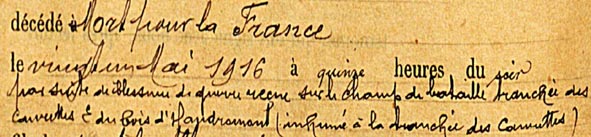 décédé à Mort pour la France
le vingt un Mai 1916 à quinze heures du soir
par suite de blessures de guerre reçues sur le champ de bataille tranchée des
Cuvettes E du bois d'Haudromont (inhumé à la tranchée des Cuvettes)